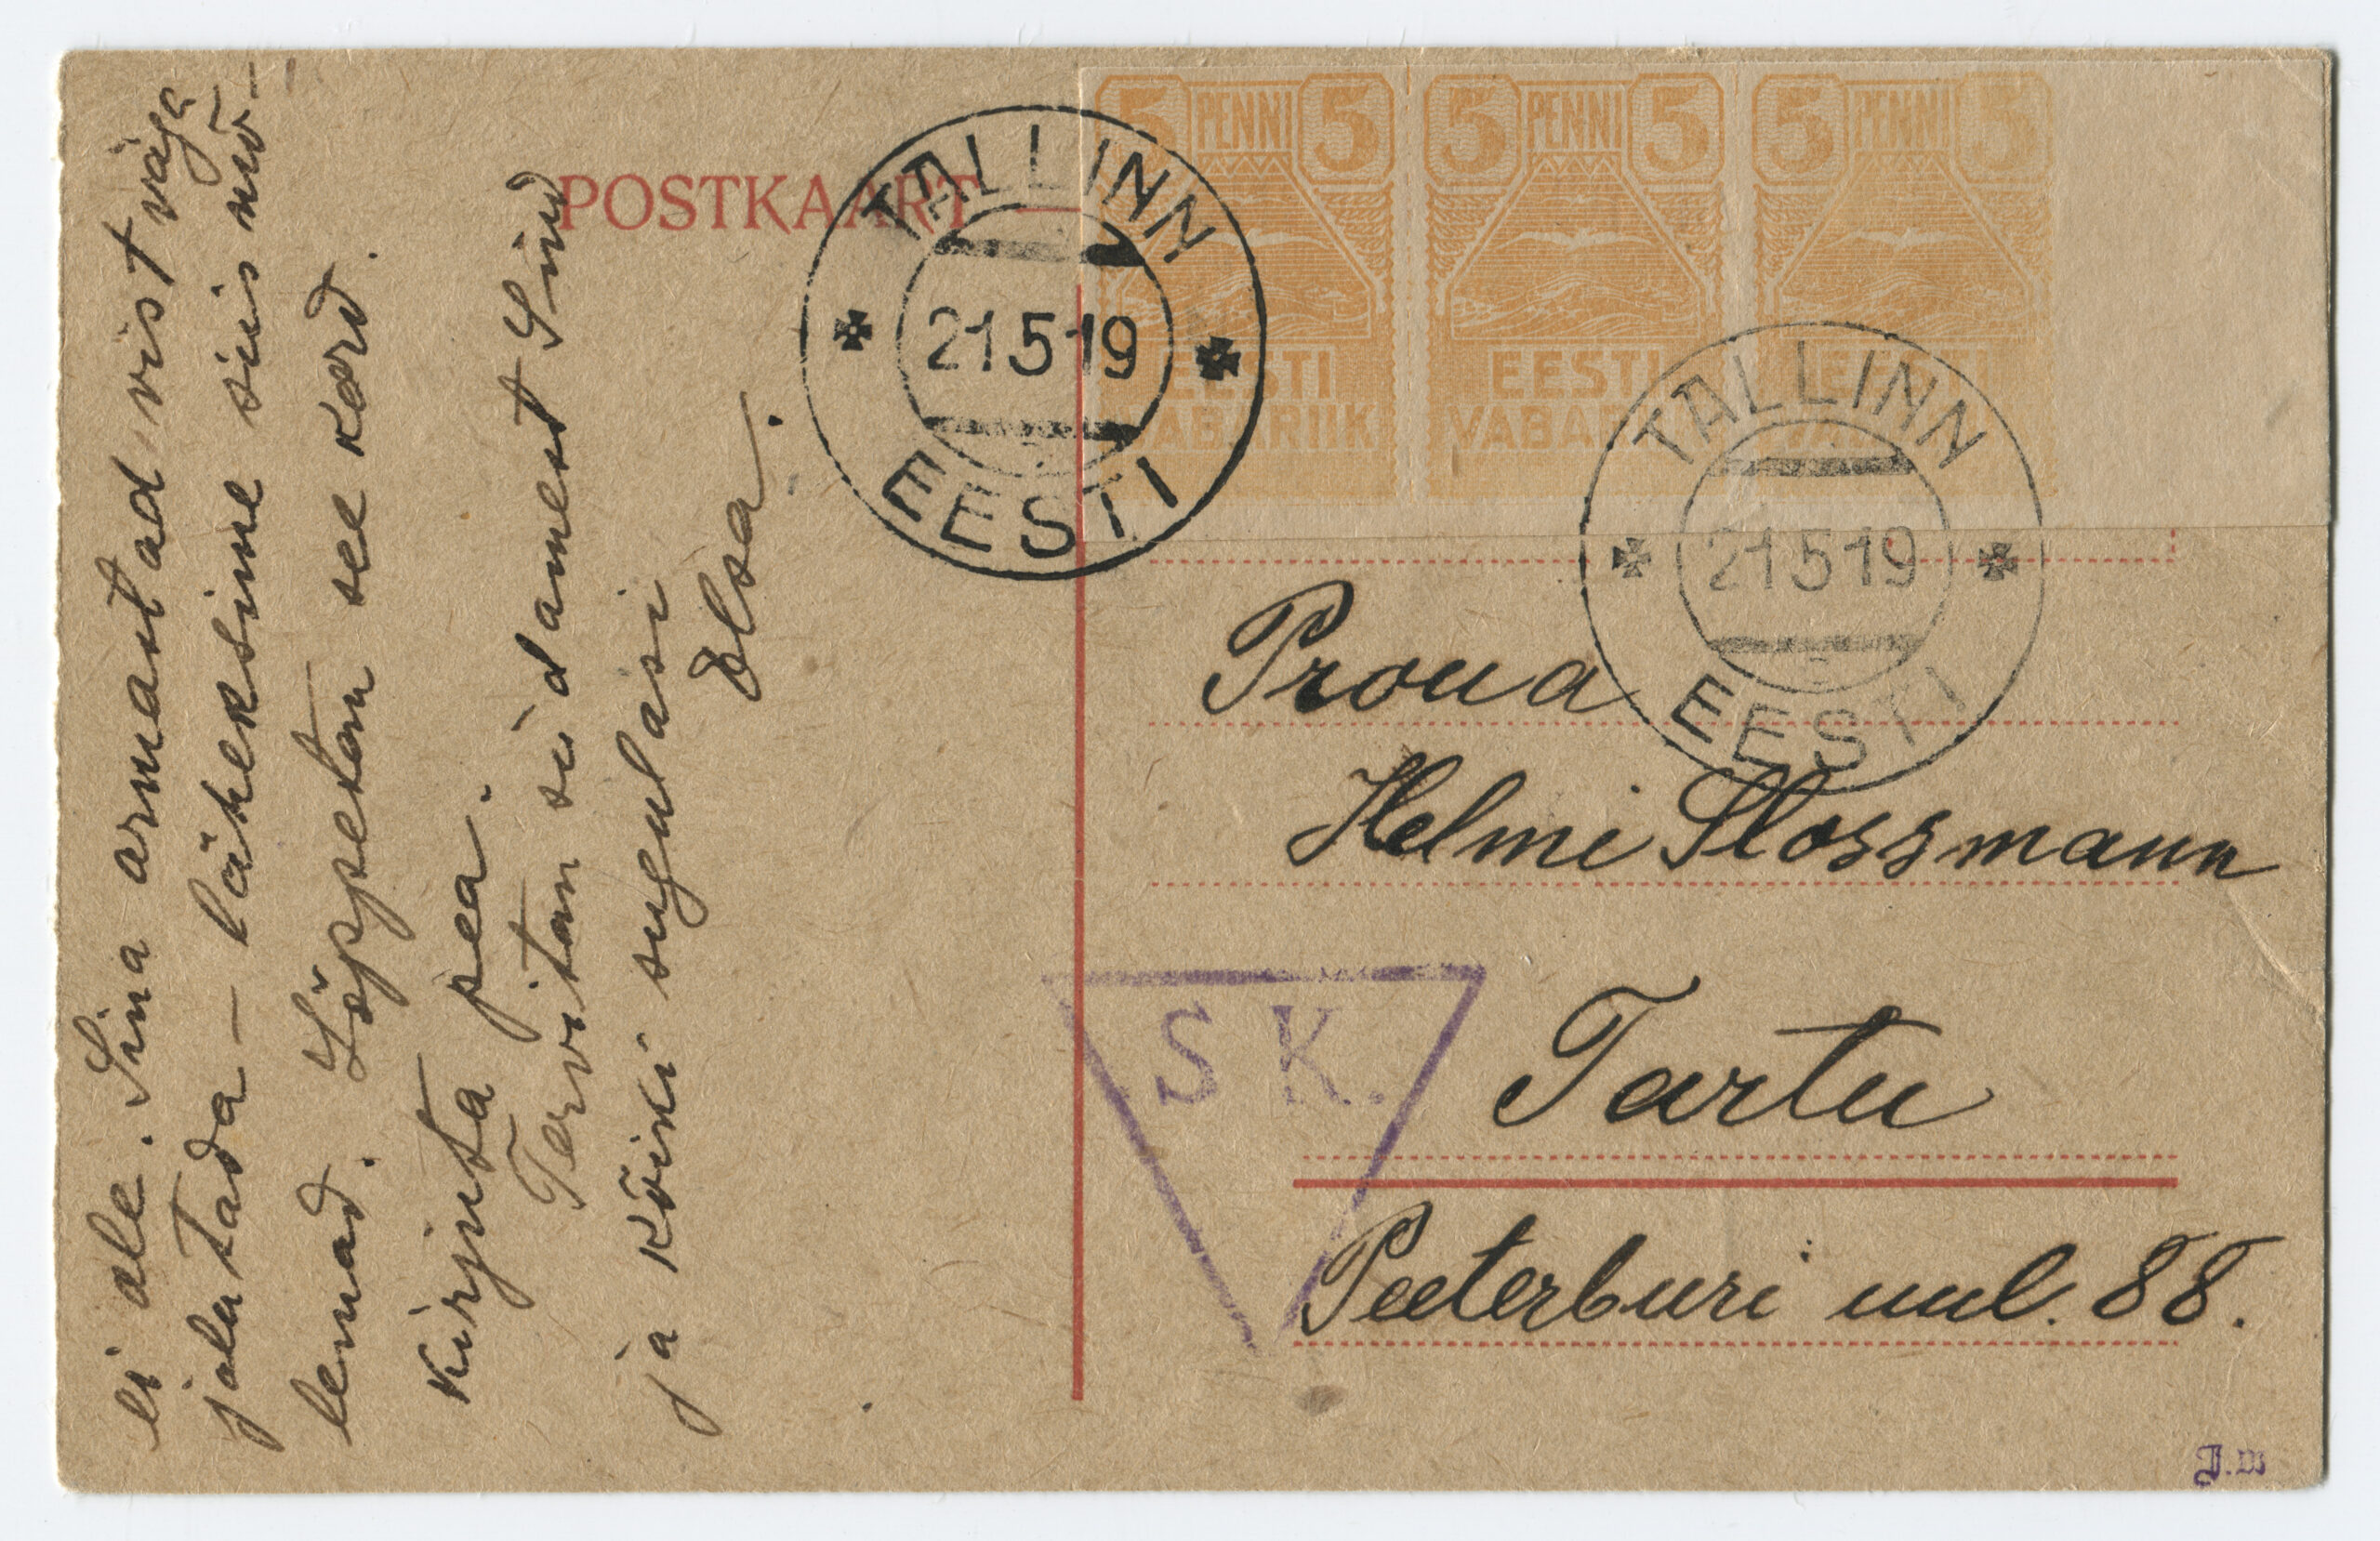 ei ole. Sina armastad vist väga
jalutada — läheksime siis mõ-
lemad. Lõppetan see kord.
Kirjuta pea.
Tervitan südamest Sind
ja kõiki sugulasi
Elsa.
POSTKAART
5 PENNI 5
EESTI
VABARIIK
5 PENNI 5
EESTI
VABARIIK
5 PENNI 5
EESTI
TALLINN
21 5 19
EESTI
TALLINN
21 5 19
EESTI
Proua
Helmi Slossmann
S K.
Tartu
Peeterburi uul. 88.